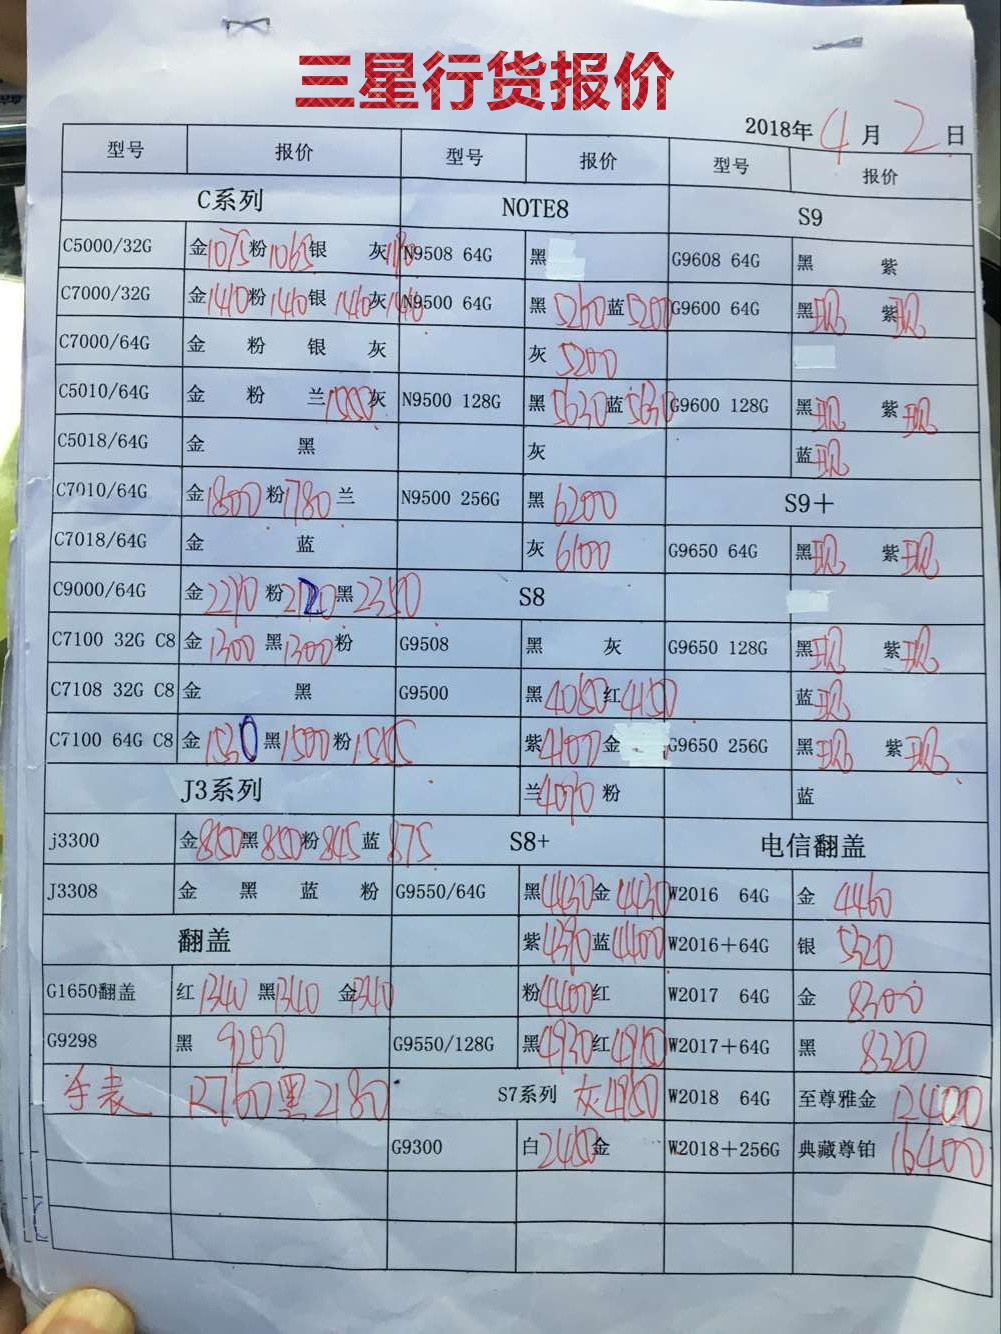 三星行货报价
2018年4月2日
型号 报价 型号 报价 型号 报价
C系列 NOTE8 S9
C5000/32G 金1075粉1065银 灰 N9508 64G 黑 G9608 64G 黑 紫
C7000/32G 金1440粉1440银1440灰1440 N9500 64G 黑5260蓝5200 G9600 64G 黑现 紫现
C7000/64G 金 粉 银 灰 灰5200
C5010/64G 金 粉 兰 灰 N9500 128G 黑5630蓝5630 G9600 128G 黑现 紫现
C5018/64G 金 黑 灰 蓝现
C7010/64G 金1800粉1780兰 N9500 256G 黑6200 S9+
C7018/64G 金 蓝 灰6100 G9650 64G 黑现 紫现
C9000/64G 金 粉 黑 S8
C7100 32G C8 金1300黑1300粉 G9508 黑 灰 G9650 128G 黑现 紫现
C7108 32G C8 金 黑 G9500 黑4050红4150 蓝现
C7100 64G C8 金1530黑1500粉 紫4100金 G9650 256G 黑现 紫现
J3系列 兰4070粉 蓝
j3300 金850黑850粉845蓝875 S8+ 电信翻盖
J3308 金 黑 蓝 粉 G9550/64G 黑4430金4430 W2016 64G 金4460
翻盖 紫4390蓝4400 W2016+64G 银5320
G1650翻盖 红1340黑1340金1340 粉4400红 W2017 64G 金8300
G9298 黑9200 G9550/128G 黑4930红4910 W2017+64G 黑8320
手表 R760黑2180 S7系列 灰4980 W2018 64G 至尊雅金12400
G9300 白2450金 W2018+256G 典藏尊铂16400